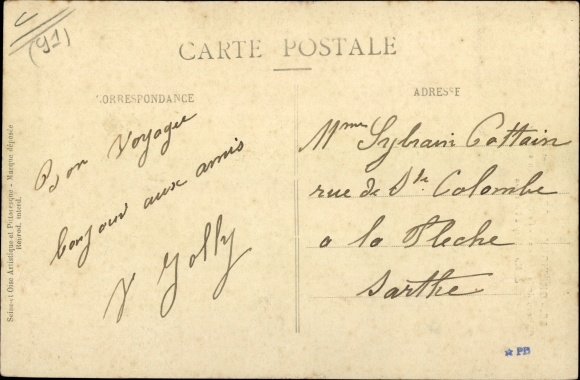 (91)
CARTE POSTALE
CORRESPONDANCE
ADRESSE
Bon Voyage
bonjour aux amis
V Jolly
Mme Sylvain Cottain
rue de Ste Colombe
a la Fleche
Sarthe
Seine-et-Oise Artistique et Pittoresque - Marque déposée
Reprod. interd.
★ PD